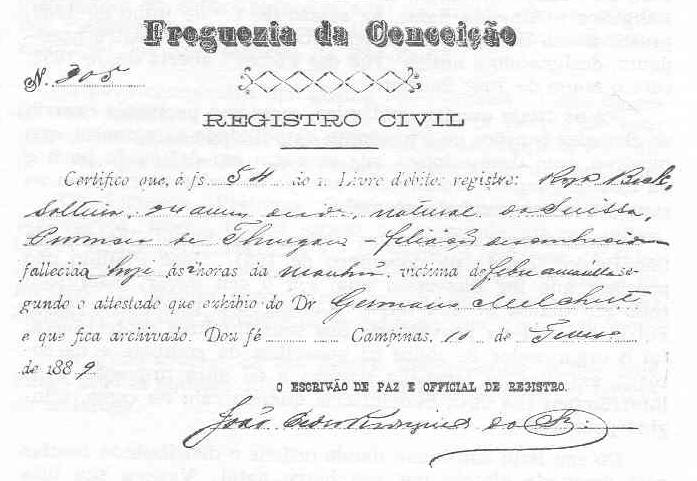 Freguezia da Conceição
N. 305
REGISTRO CIVIL
Certifico que, á fs 54 do 1. Livro d'obitos registro: Roza Beck
Solteira, 24 annos de id., natural da Suissa,
de Thurgau - filiação desconhecida
fallecida hoje ás 2 horas da manhã, victima de febre amarella se-
gundo o attestado que exhibio do Dr Germano Melchert
e que fica archivado. Dou fé Campinas, 10 de
de 1889
O ESCRIVÃO DE PAZ E OFFICIAL DE REGISTRO.
João